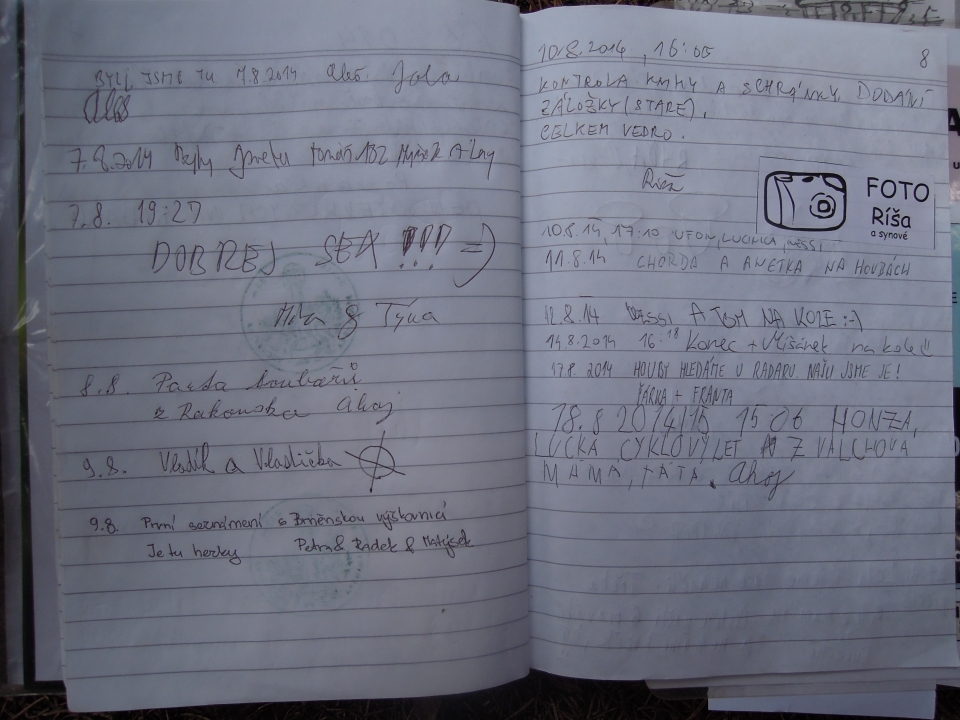 BYLI JSME TU 7.8.2014 Aleš. Jola
7.8.2014 Byly jsme tu
7.8. 19:27
DOBREJ SEX !!!! =)
Míra & Týna
8.8. Parta houbařů
z Rakouska Ahoj
9.8. Vladík a Vlastička
9.8. První seznámení s Brněnskou výškovnicí
Je tu hezky Petra & Radek & Matýsek
8
10.8.2014, 16:00
KONTROLA KNIHY A SCHRÁNKY, DODANÍ
ZÁLOŽKY (STARÉ),
CELKEM VEDRO.
Ríša
FOTO
Ríša
a synové
10.8.14, 17:10 UFON, LUCINKA,
11.8.14 CHORDA A ANETKA NA HOUBÁCH
12.8.14 A TOM NA KOLE :-)
14.8.2014 16.18 Konec + Myšánek na kole!!
17.8.2014 HOUBY HLEDÁME U RADARU NAŠLI JSME JE!
JÁRKA + FRANTA
18.8 2014 15 06 HONZA,
LUCKA CYKLOVÝLET Z VALCHOVA
MAMA, TÁTA. Ahoj